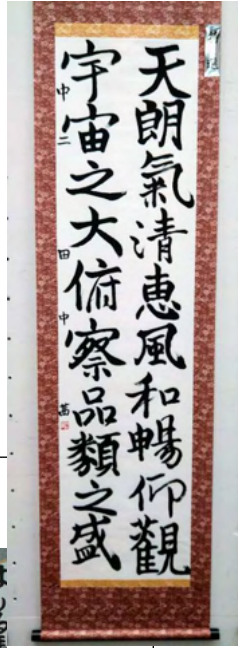 天朗氣清惠風和暢仰觀
宇宙之大俯察品類之盛
中二 田中